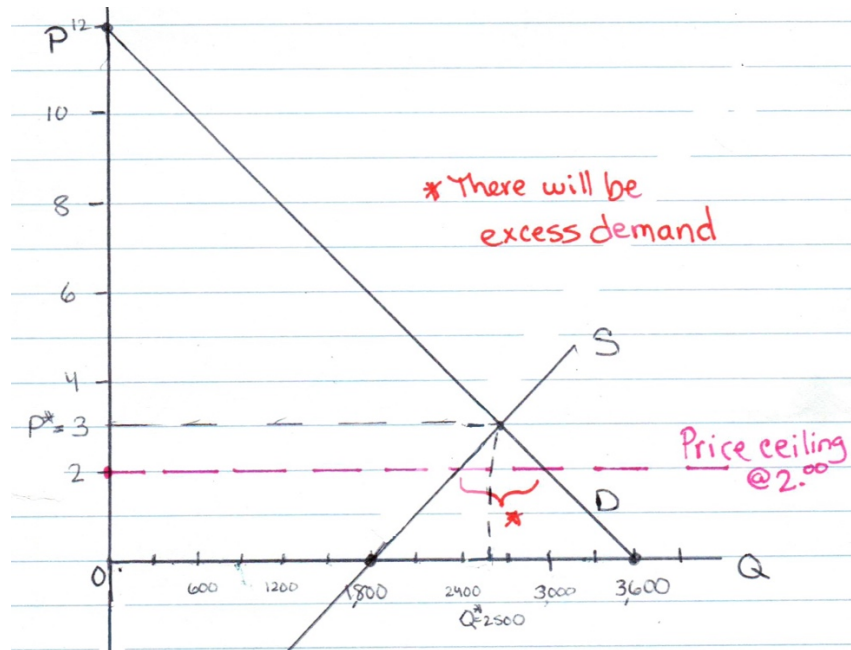 P 12
10
8
6
4
P* = 3
2
0
* There will be
excess demand
S
Price ceiling
@ 2.00
D
*
Q
600 1200 1,800 2400 3,000 3,600
Q* = 2500